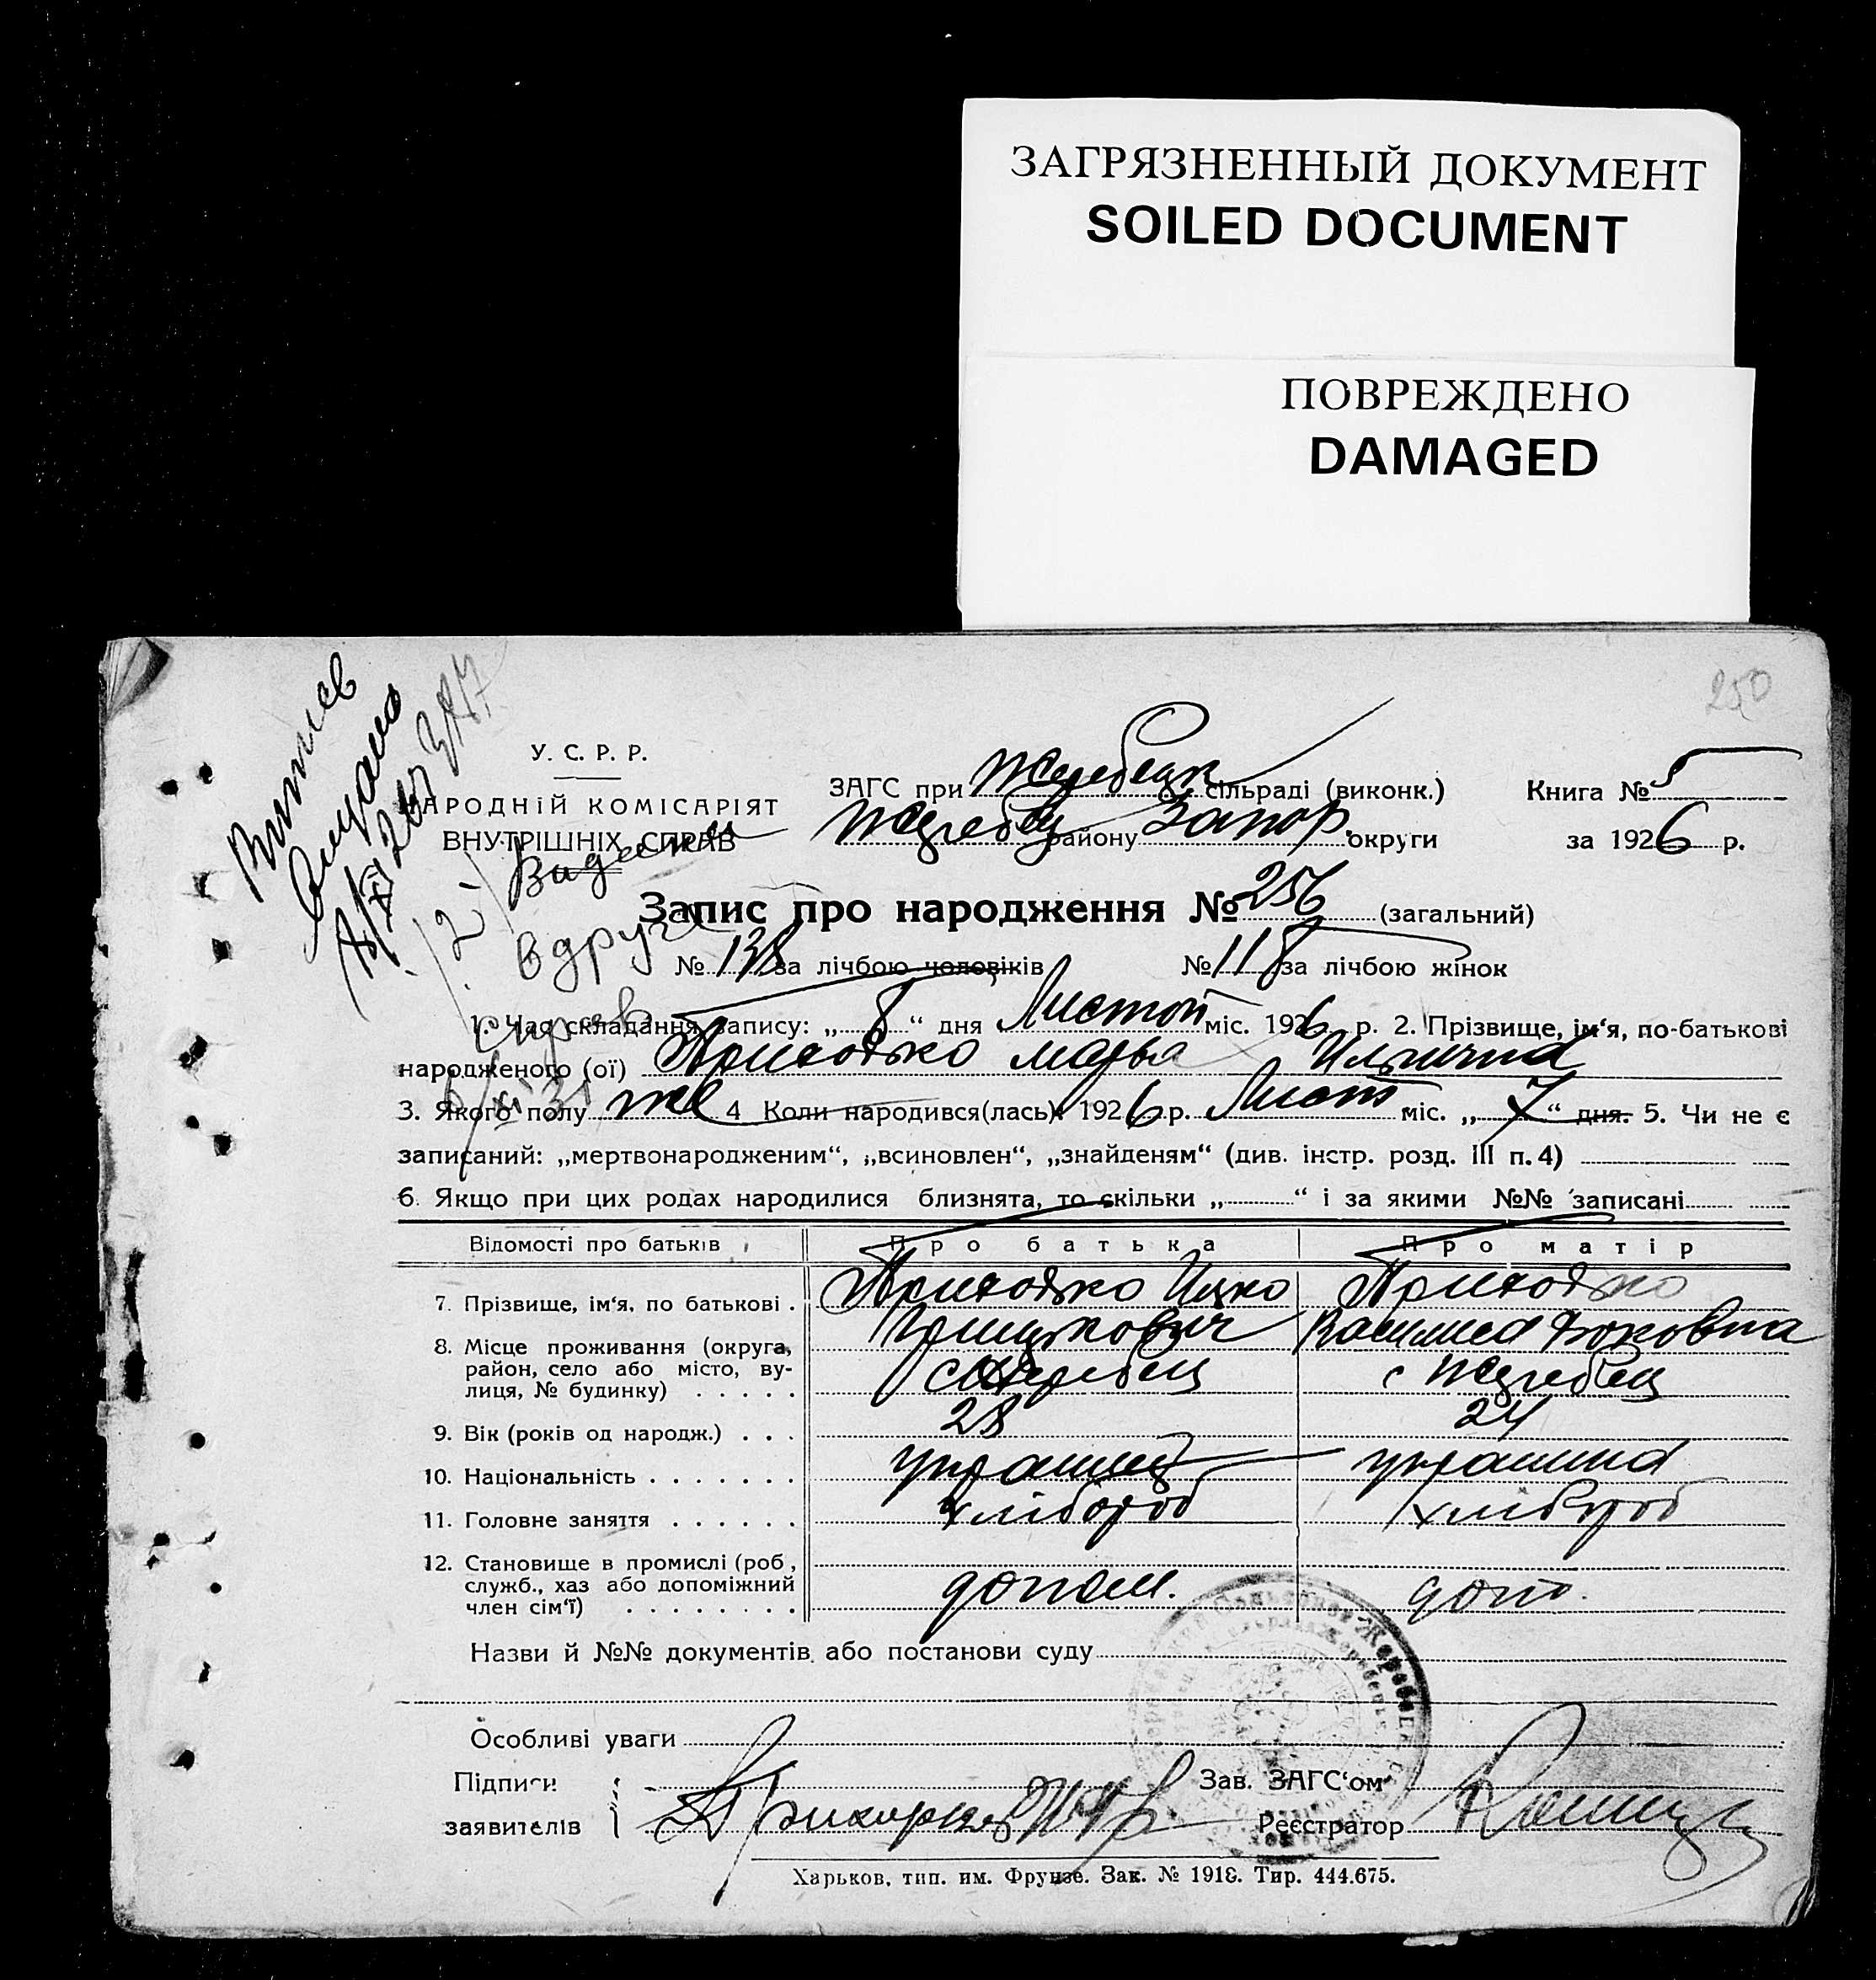 ЗАГРЯЗНЕННЫЙ ДОКУМЕНТ
SOILED DOCUMENT
ПОВРЕЖДЕНО
DAMAGED
250
Витяг
видано
У. С. Р. Р.
НАРОДНІЙ КОМІСАРІЯТ
ВНУТРІШНІХ СПРАВ
2)
вдруге
ЗАГС при Жеребецк сільраді (виконк.)
Жеребец району Запор. округи
Книга № 5
за 1926 р.
Запис про народження № 256 (загальний)
№ 138 за лічбою чоловіків № 118 за лічбою жінок
1. Час складання запису: „ 8 “ дня Листоп міс. 1926 р. 2. Прізвище, ім‘я, по-батькові
народженого (ої) Приходько Марья
3. Якого полу же 4 Коли народився(лась): 1926 р. Лист міс. „ 7 “ дня. 5. Чи не є
записаний: „мертвонародженим“, „всиновлен“, „знайденям“ (див. інстр. розд. III п. 4)
6. Якщо при цих родах народилися близнята, то скільки „ “ і за якими №№ записані
Відомості про батьків Про батька Про матір
7. Прізвище, ім‘я, по батькові . Приходько Приходько
8. Місце проживання (округа, район, село або місто, вулиця, № будинку) с Жеребец с Жеребец
9. Вік (років од народж.) . . . 28 24
10. Національність . . . . . . . украинец украинка
11. Головне заняття . . . . . . хлібороб хлібороб
12. Становище в промислі (роб., служб., хаз або допоміжний член сім‘ї) . . . . . . . . допом. доп.
Назви й №№ документів або постанови суду
Особливі уваги
Підписи
заявителів
Зав. ЗАГС‘ом
Реєстратор
Харьков, тип. им. Фрунзе. Зак. № 1918. Тир. 444.675.